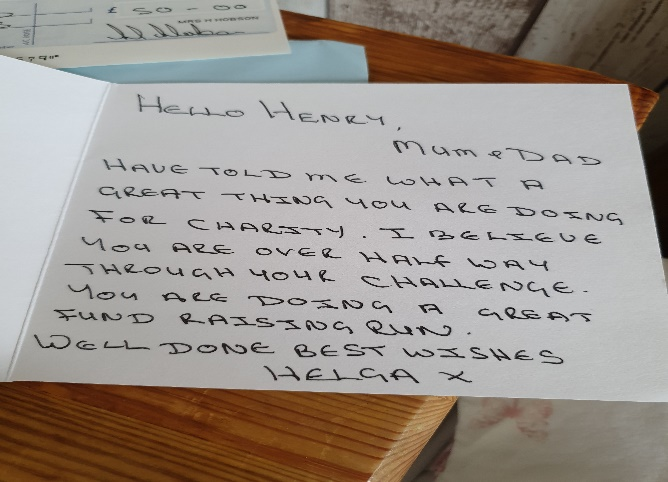 £ 50-00
MRS H HOBSON
HELLO HENRY,
MUM & DAD
HAVE TOLD ME WHAT A
GREAT THING YOU ARE DOING
FOR CHARITY. I BELIEVE
YOU ARE OVER HALF WAY
THROUGH YOUR CHALLENGE.
YOU ARE DOING A GREAT
FUND RAISING RUN.
WELL DONE BEST WISHES
HELGA X